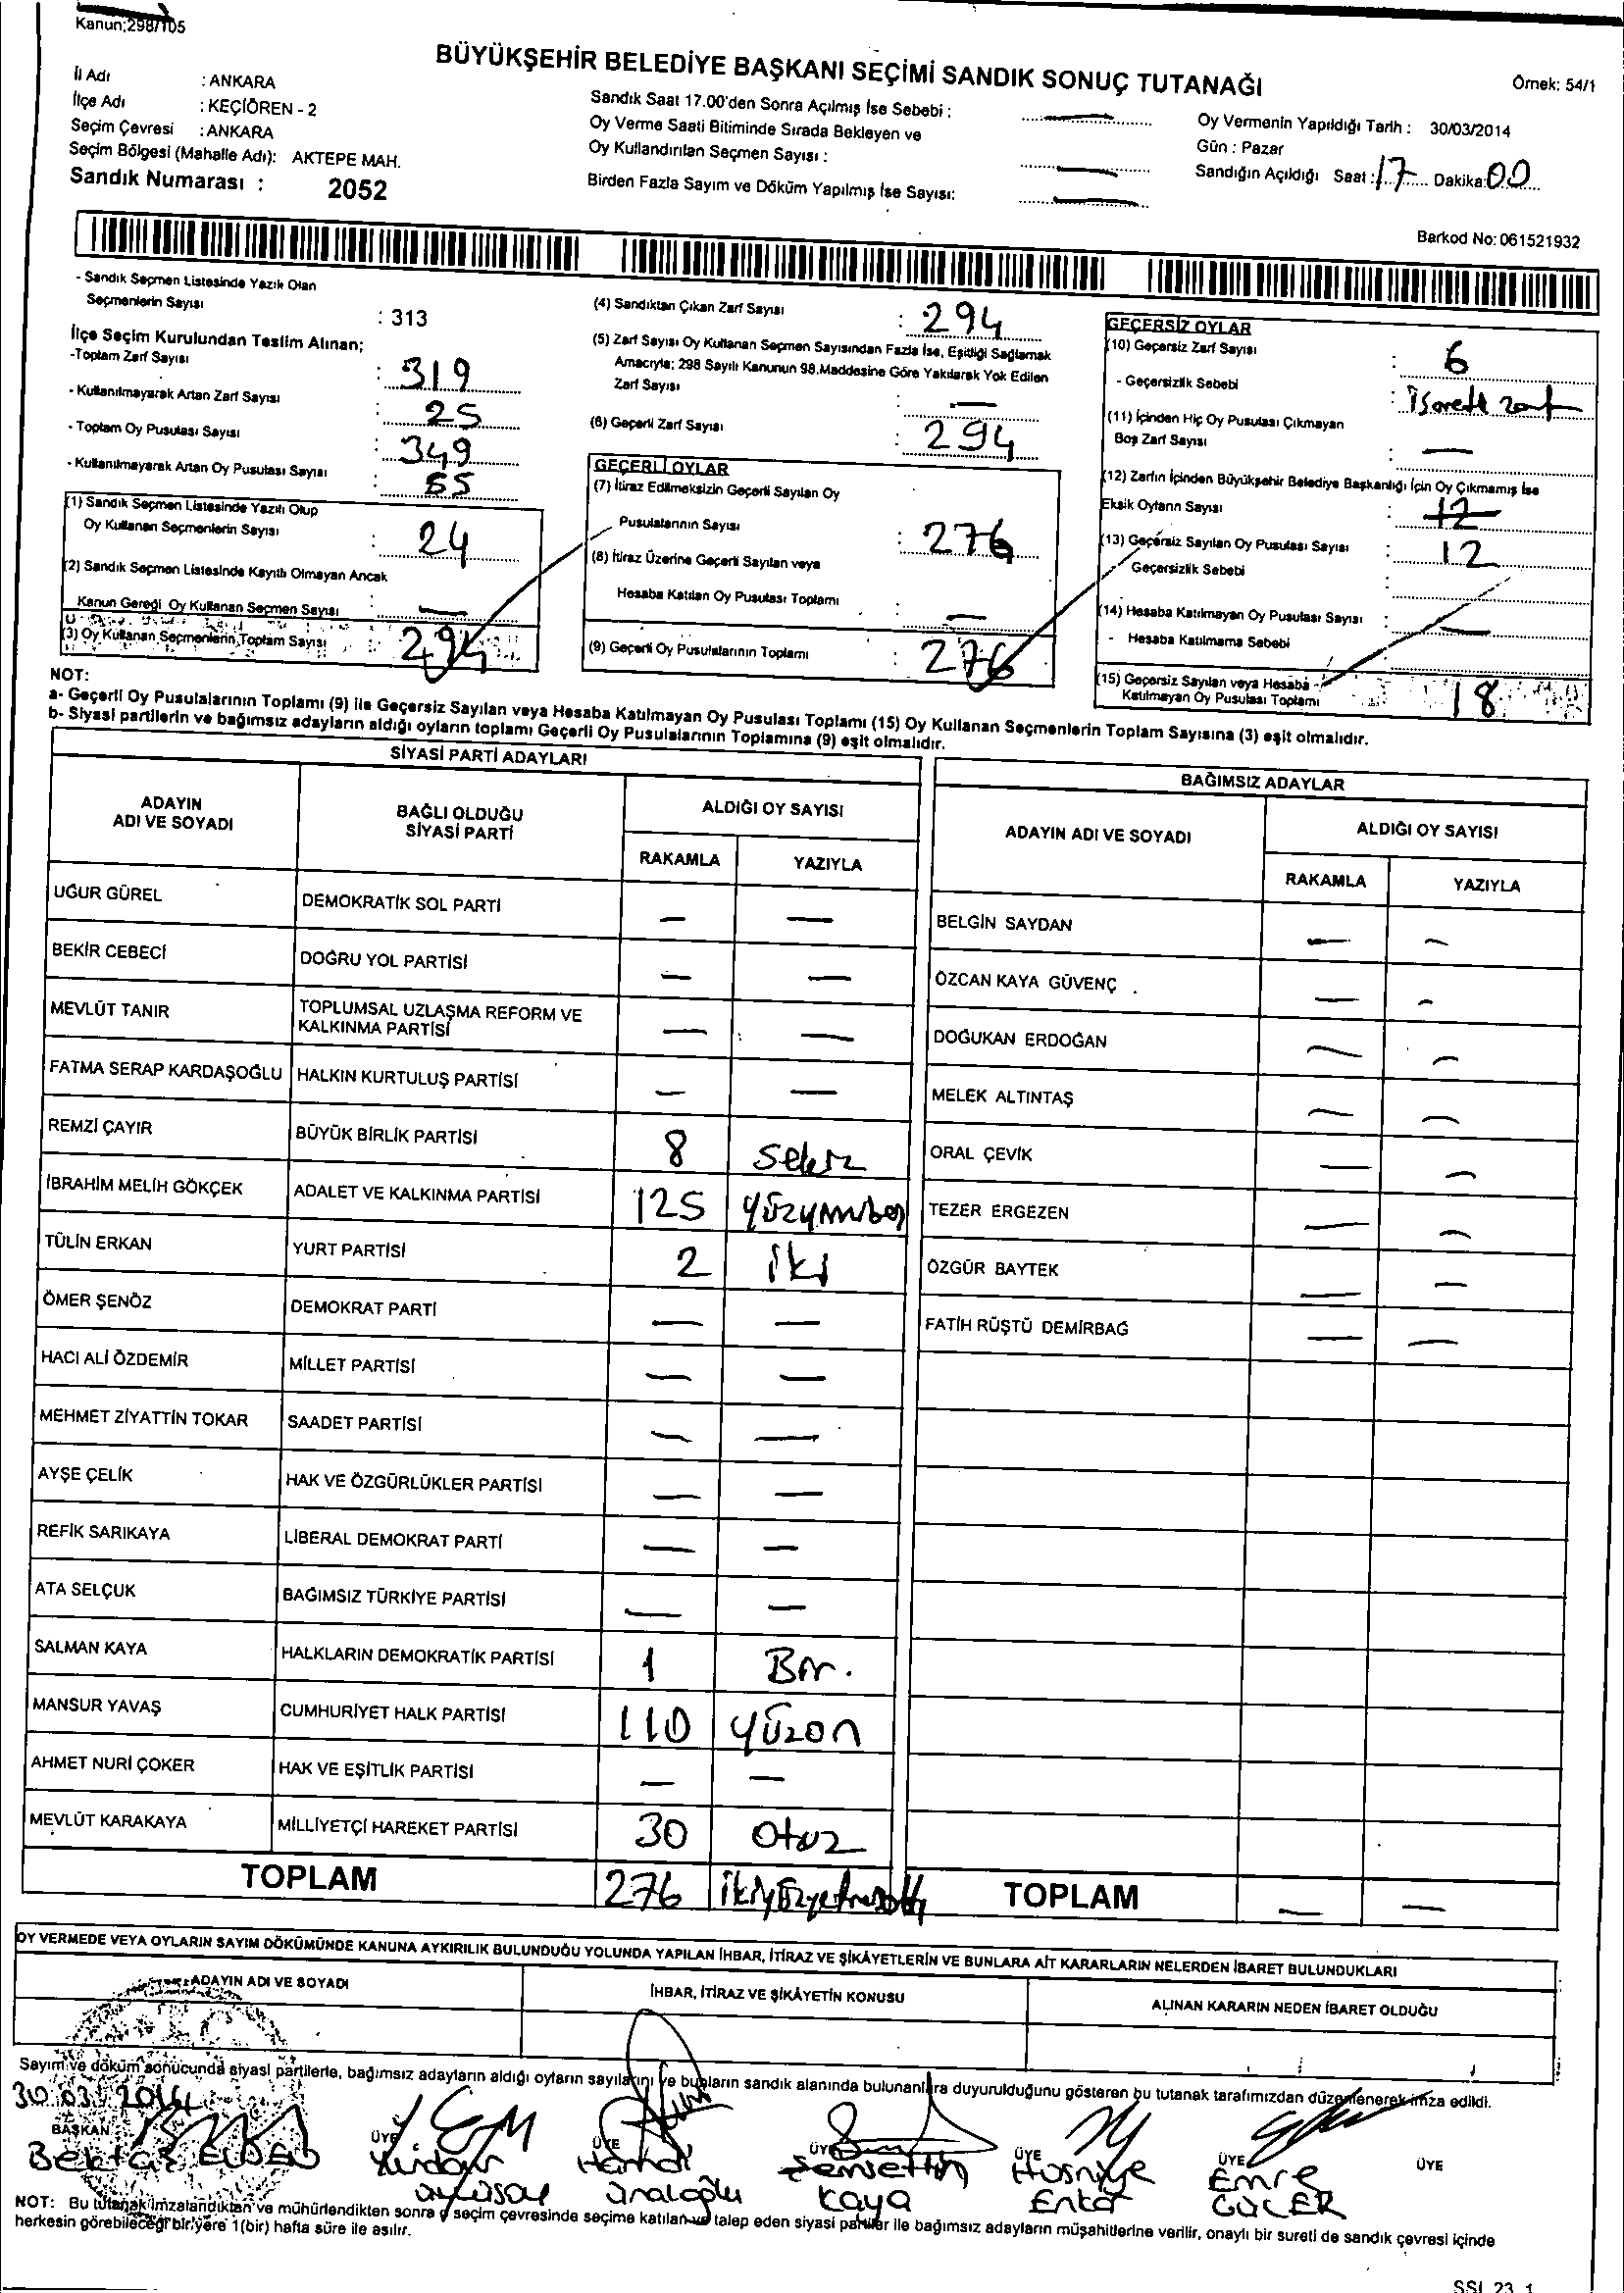 Kanun;298/105
BÜYÜKŞEHİR BELEDİYE BAŞKANI SEÇİMİ SANDIK SONUÇ TUTANAĞI
Örnek: 54/1
İl Adı : ANKARA
İlçe Adı : KEÇİÖREN - 2
Seçim Çevresi : ANKARA
Seçim Bölgesi (Mahalle Adı): AKTEPE MAH.
Sandık Numarası : 2052
Sandık Saat 17.00'den Sonra Açılmış İse Sebebi :
Oy Verme Saati Bitiminde Sırada Bekleyen ve
Oy Kullandırılan Seçmen Sayısı :
Birden Fazla Sayım ve Döküm Yapılmış İse Sayısı:
Oy Vermenin Yapıldığı Tarih : 30/03/2014
Gün : Pazar
Sandığın Açıldığı Saat : 17 Dakika: 00
Barkod No: 061521932
- Sandık Seçmen Listesinde Yazılı Olan
Seçmenlerin Sayısı : 313
İlçe Seçim Kurulundan Teslim Alınan;
-Toplam Zarf Sayısı : 319
- Kullanılmayarak Artan Zarf Sayısı : 25
- Toplam Oy Pusulası Sayısı : 349
- Kullanılmayarak Artan Oy Pusulası Sayısı : 55
(1) Sandık Seçmen Listesinde Yazılı Olup
Oy Kullanan Seçmenlerin Sayısı : 24
(2) Sandık Seçmen Listesinde Kayıtlı Olmayan Ancak
Kanun Gereği Oy Kullanan Seçmen Sayısı : —
(3) Oy Kullanan Seçmenlerin Toplam Sayısı : 294
(4) Sandıktan Çıkan Zarf Sayısı : 294
(5) Zarf Sayısı Oy Kullanan Seçmen Sayısından Fazla İse, Eşitliği Sağlamak
Amacıyla; 298 Sayılı Kanunun 98.Maddesine Göre Yakılarak Yok Edilen
Zarf Sayısı : —
(6) Geçerli Zarf Sayısı : 294
GEÇERLİ OYLAR
(7) İtiraz Edilmeksizin Geçerli Sayılan Oy
Pusulalarının Sayısı : 276
(8) İtiraz Üzerine Geçerli Sayılan veya
Hesaba Katılan Oy Pusulası Toplamı : —
(9) Geçerli Oy Pusulalarının Toplamı : 276
GEÇERSİZ OYLAR
(10) Geçersiz Zarf Sayısı : 6
- Geçersizlik Sebebi : İşaretli zarf
(11) İçinden Hiç Oy Pusulası Çıkmayan
Boş Zarf Sayısı : —
(12) Zarfın İçinden Büyükşehir Belediye Başkanlığı İçin Oy Çıkmamış İse
Eksik Oyların Sayısı : 12
(13) Geçersiz Sayılan Oy Pusulası Sayısı : 12
Geçersizlik Sebebi :
(14) Hesaba Katılmayan Oy Pusulası Sayısı : —
- Hesaba Katılmama Sebebi :
(15) Geçersiz Sayılan veya Hesaba
Katılmayan Oy Pusulası Toplamı 18
NOT:
a- Geçerli Oy Pusulalarının Toplamı (9) ile Geçersiz Sayılan veya Hesaba Katılmayan Oy Pusulası Toplamı (15) Oy Kullanan Seçmenlerin Toplam Sayısına (3) eşit olmalıdır.
b- Siyasi partilerin ve bağımsız adayların aldığı oyların toplamı Geçerli Oy Pusulalarının Toplamına (9) eşit olmalıdır.
SİYASİ PARTİ ADAYLARI
ADAYIN ADI VE SOYADI
BAĞLI OLDUĞU SİYASİ PARTİ
ALDIĞI OY SAYISI
RAKAMLA YAZIYLA
UĞUR GÜREL DEMOKRATİK SOL PARTİ — —
BEKİR CEBECİ DOĞRU YOL PARTİSİ — —
MEVLÜT TANIR TOPLUMSAL UZLAŞMA REFORM VE KALKINMA PARTİSİ — —
FATMA SERAP KARDAŞOĞLU HALKIN KURTULUŞ PARTİSİ — —
REMZİ ÇAYIR BÜYÜK BİRLİK PARTİSİ 8 Sekiz
İBRAHİM MELİH GÖKÇEK ADALET VE KALKINMA PARTİSİ 125 yüzyirmibeş
TÜLİN ERKAN YURT PARTİSİ 2 İki
ÖMER ŞENÖZ DEMOKRAT PARTİ — —
HACI ALİ ÖZDEMİR MİLLET PARTİSİ — —
MEHMET ZİYATTİN TOKAR SAADET PARTİSİ — —
AYŞE ÇELİK HAK VE ÖZGÜRLÜKLER PARTİSİ — —
REFİK SARIKAYA LİBERAL DEMOKRAT PARTİ — —
ATA SELÇUK BAĞIMSIZ TÜRKİYE PARTİSİ — —
SALMAN KAYA HALKLARIN DEMOKRATİK PARTİSİ 1 Bir.
MANSUR YAVAŞ CUMHURİYET HALK PARTİSİ 110 yüzon
AHMET NURİ ÇOKER HAK VE EŞİTLİK PARTİSİ — —
MEVLÜT KARAKAYA MİLLİYETÇİ HAREKET PARTİSİ 30 Otuz
TOPLAM 276 İkiyüzyetmişaltı
BAĞIMSIZ ADAYLAR
ADAYIN ADI VE SOYADI
ALDIĞI OY SAYISI
RAKAMLA YAZIYLA
BELGİN SAYDAN — —
ÖZCAN KAYA GÜVENÇ — —
DOĞUKAN ERDOĞAN — —
MELEK ALTINTAŞ — —
ORAL ÇEVİK — —
TEZER ERGEZEN — —
ÖZGÜR BAYTEK — —
FATİH RÜŞTÜ DEMİRBAĞ — —
TOPLAM — —
OY VERMEDE VEYA OYLARIN SAYIM DÖKÜMÜNDE KANUNA AYKIRILIK BULUNDUĞU YOLUNDA YAPILAN İHBAR, İTİRAZ VE ŞİKÂYETLERİN VE BUNLARA AİT KARARLARIN NELERDEN İBARET BULUNDUKLARI
ADAYIN ADI VE SOYADI
İHBAR, İTİRAZ VE ŞİKÂYETİN KONUSU
ALINAN KARARIN NEDEN İBARET OLDUĞU
Sayım ve döküm sonucunda siyasi partilerle, bağımsız adayların aldığı oyların sayılarını ve bunların sandık alanında bulunanlara duyurulduğunu gösteren bu tutanak tarafımızdan düzenlenerek imza edildi.
30.03.2014
BAŞKAN ÜYE ÜYE ÜYE ÜYE ÜYE ÜYE
Bektaş Hamdi Şemsettin Hüsniye Emre
Kaya GÜÇER
NOT: Bu tutanak imzalandıktan ve mühürlendikten sonra o seçim çevresinde seçime katılan ve talep eden siyasi partiler ile bağımsız adayların müşahitlerine verilir, onaylı bir sureti de sandık çevresi içinde
herkesin görebileceği bir yere 1(bir) hafta süre ile asılır.
SSI 23 1